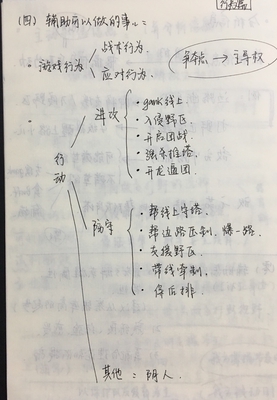 (四) 辅助可以做的事:
战术行为
游戏行为
应对行为
争夺点 → 主导权
进攻
· gank线上.
· 入侵野区
· 开启团战.
· 强杀推塔
· 开龙逼团
行动
防守
· 帮线上守塔.
· 帮边路压制, 爆一路.
· 支援野区
· 带线牵制.
· 保后排.
其他: 阴人.